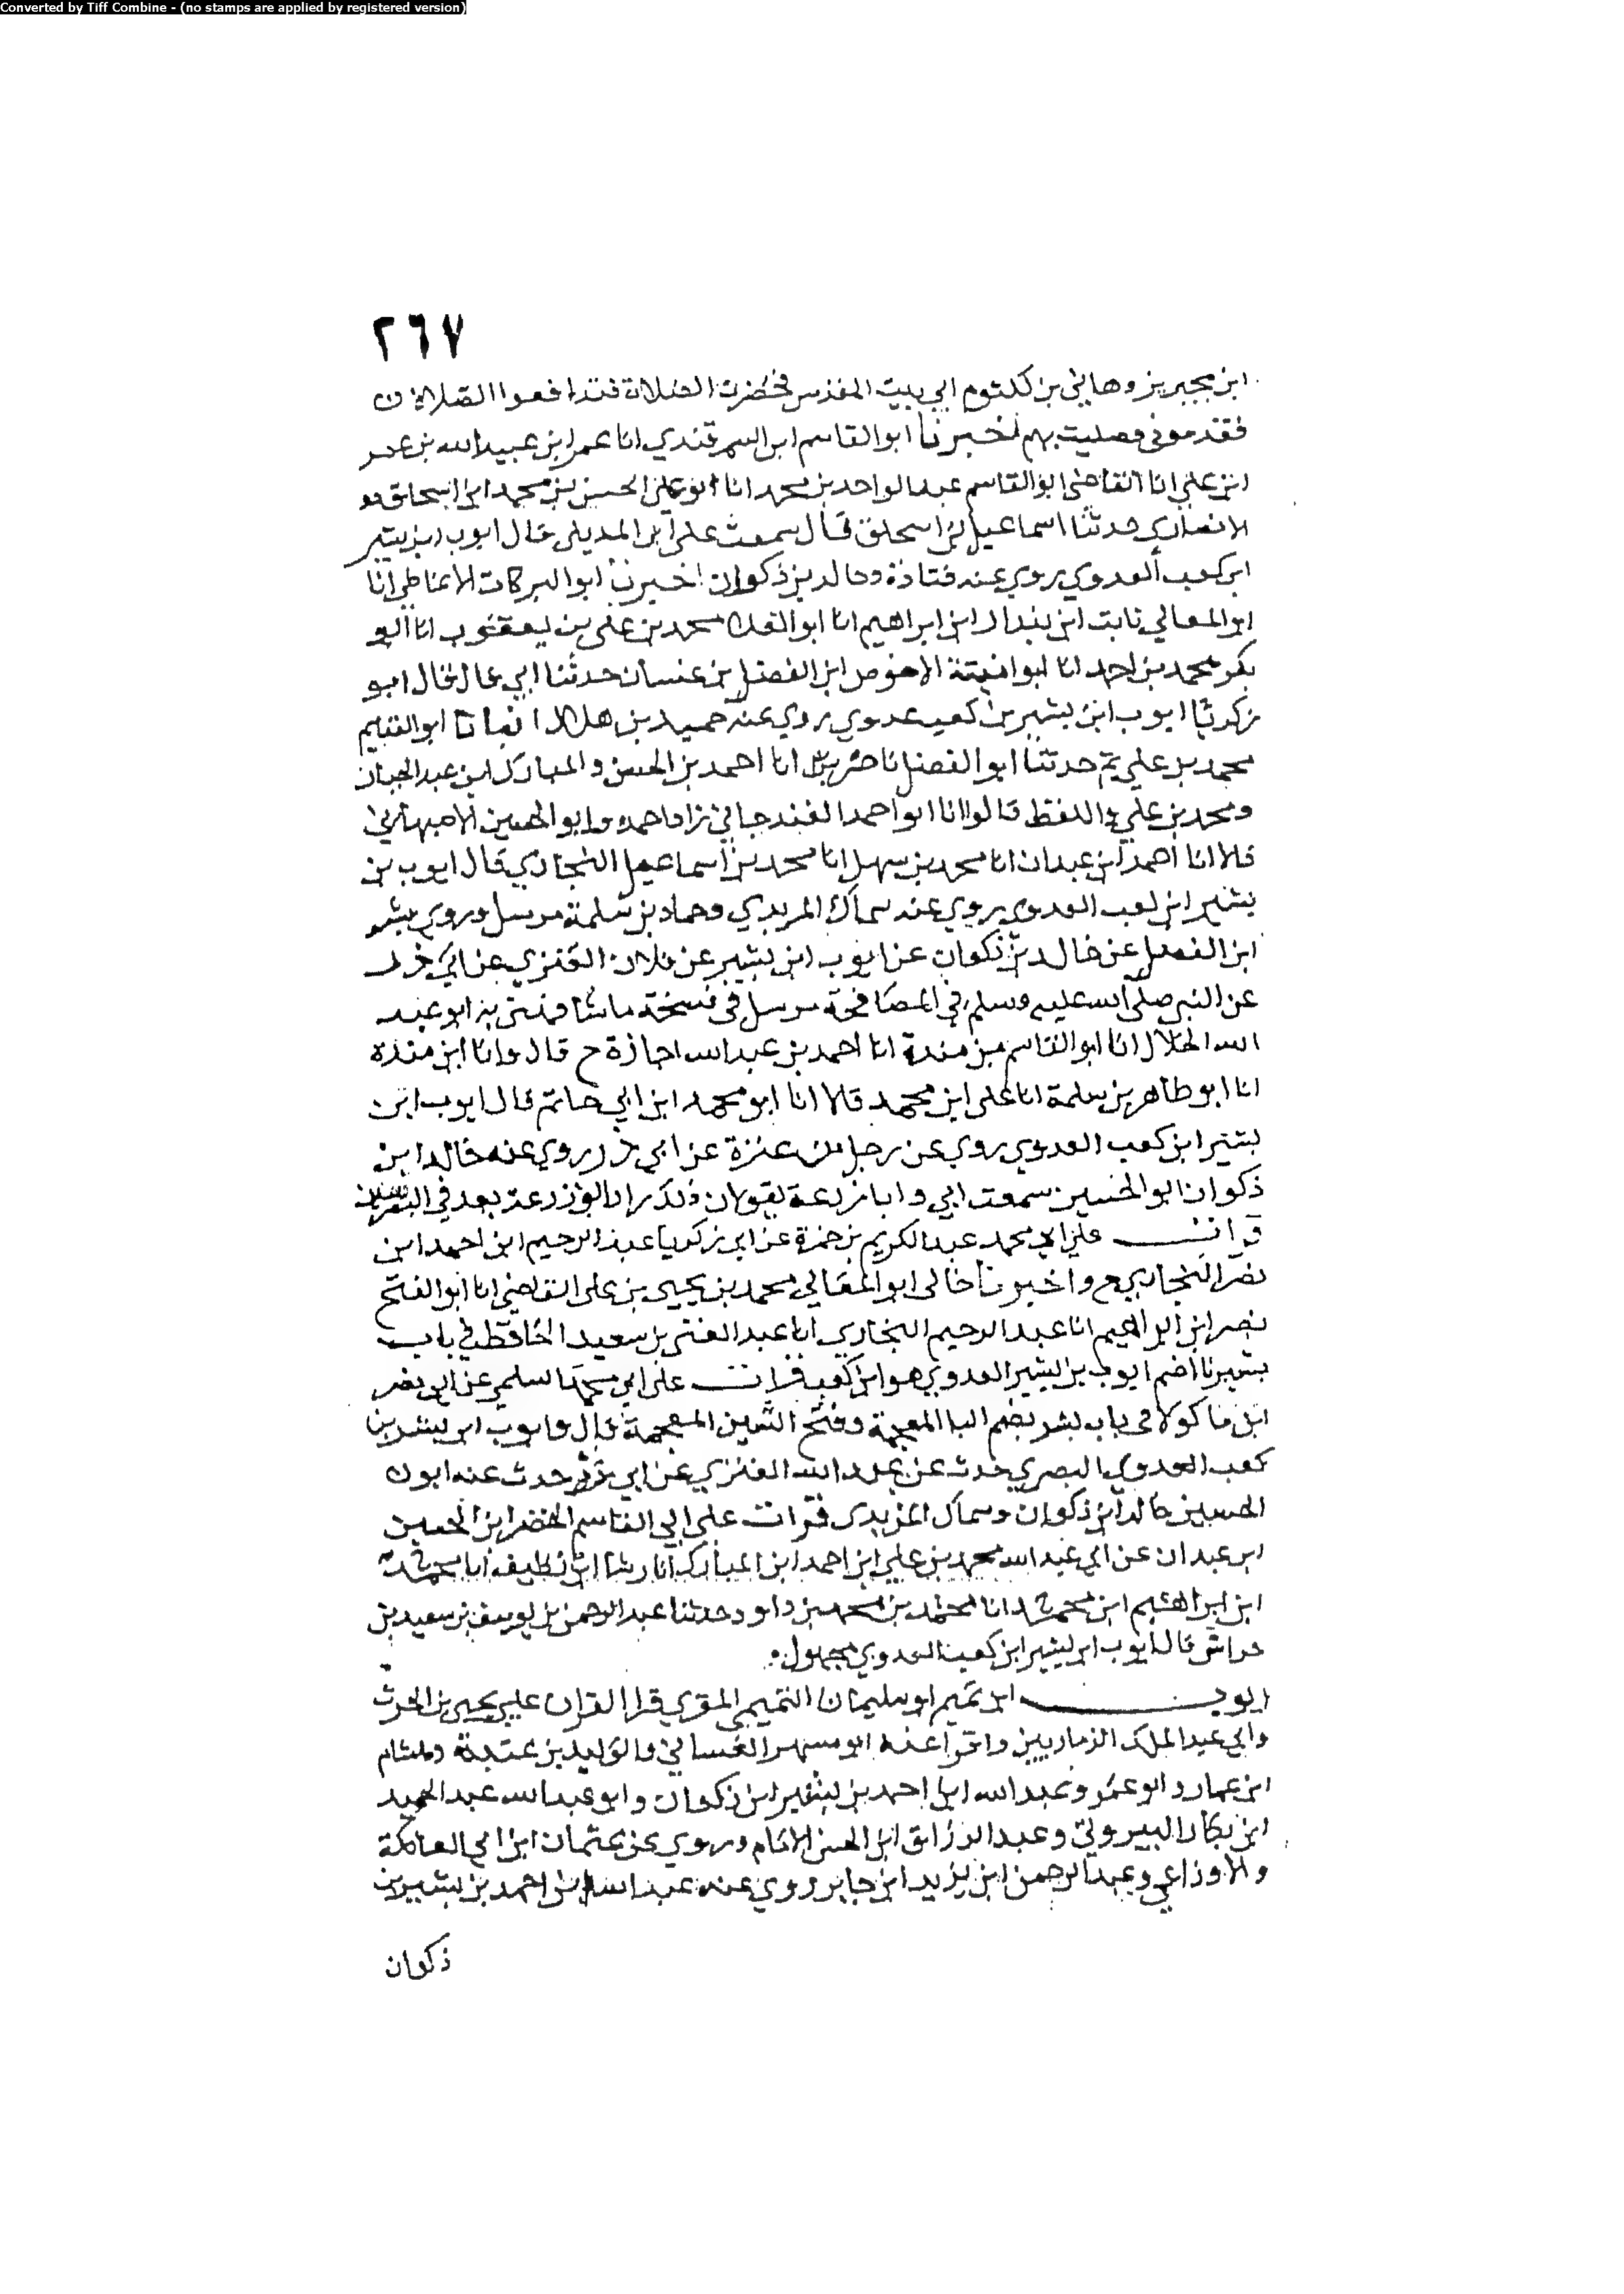 Converted by Tiff Combine - (no stamps are applied by registered version)
٢٦٧
ابن محيريز وهاني بن كلثوم الي بيت المقدس فحضرت الصلاة فتدافعوا الصلاة
فقدموني فصليت بهم اخبرنا ابو القاسم ابن السمرقندي انا عمر ابن عبيد الله بن عمر
ابن علي انا القاضي ابو القاسم عبد الواحد بن محمد انا ابو علي الحسن بن محمد ابن اسحاق
الانصاري حدثنا اسماعيل ابن اسحاق قال سمعت علي ابن المديني قال ايوب ابن بشير
ابن كعب العدوي روي عنه قتادة وخالد بن ذكوان اخبرنا ابو البركات الانماطي انا
ابو المعالي ثابت ابن بندار ابن ابراهيم انا ابو العلا محمد بن علي بن يعقوب انا ابو
بكر محمد بن احمد انا ابو امية الاحوص ابن الفضل بن غسان حدثنا ابي قال قال ابو
زكريا ايوب ابن بشير بن كعب عدوي روي عنه حميد بن هلال انبانا ابو الغنايم
محمد بن علي ثم حدثنا ابو الفضل انا احمد بن الحسن والمبارك ابن عبد الجبار
ومحمد بن علي واللفظ له قالوا انا ابو احمد الغندجاني زاد احمد وابو الحسين الاصبهاني
قالا انا احمد ابن عبدان انا محمد بن سهل انا محمد بن اسماعيل البخاري قال ايوب بن
بشير ابن كعب العدوي روي عنه سماك المربدي وحماد بن سلمة مرسل وروي بشر
ابن الفضل عن خالد بن ذكوان عن ايوب ابن بشير عن فلان العنزي عن ابي ذر
عن النبي صلي الله عليه وسلم في المصافحة مرسل في نسخة ابو عبد
الله الخلال انا ابو القاسم بن مندة انا احمد بن عبد الله اجازة ح قال وانا ابن مندة
انا ابو طاهر بن سلمة انا علي ابن محمد قالا انا ابو محمد ابن ابي حاتم قال ايوب ابن
بشير ابن كعب العدوي روي عن رجل من عنزة عن ابي ذر روي عنه خالد ابن
ذكوان ابو الحسين سمعت ابي وابا زرعة يقولان ذلك ابو زرعة يعد في البصريين
قرات علي ابي محمد عبد الكريم بن حمزة عن ابي زكريا عبد الرحيم ابن احمد ابن
نصر البخاري ح واخبرنا خالي ابو المعالي محمد بن يحيي بن علي القاضي انا ابو الفتح
نصر ابن ابراهيم انا عبد الرحيم البخاري انا عبد الغني بن سعيد الحافظ في باب
بشير ايوب بن بشير العدوي هو ابن كعب قرات علي ابي محمد السلمي عن ابي نصر
ابن ماكولا في باب بشير بضم البا المعجمة وفتح الشين المعجمة قال وايوب ابن بشير بن
كعب العدوي البصري حدث عن عبد الله العنزي عن ابي ذر حدث عنه ابو
الحسين خالد ابن ذكوان وسماك المربدي قرات علي ابي القاسم الخضر ابن الحسين
ابن عبدان عن ابي عبد الله محمد بن علي ابن احمد ابن المبارك انا رشا ابن نظيف انا محمد
ابن ابراهيم ابن محمد انا محمد بن محمد بن داود حدثنا عبد الرحمن بن يوسف بن سعيد بن
خراش قال ايوب ابن بشير ابن كعب العدوي مجهول
ايوب ابن تميم ابو سليمان التميمي المقري قرا القران علي يحيي بن الحرث
وابي عبد الملك الذماريين واقرا عنه ابو مسهر الغساني والوليد بن عتبة وهشام
ابن عمار وابو عمرو عبد الله ابن احمد بن بشير ابن ذكوان وابو عبد الله عبد الحميد
ابن بكار البيروتي وعبد الرزاق ابن الحسن الامام وروي عن عثمان ابن ابي العاتكة
والاوزاعي وعبد الرحمن ابن يزيد ابن جابر روي عنه عبد الله ابن احمد بن بشير بن
ذكوان